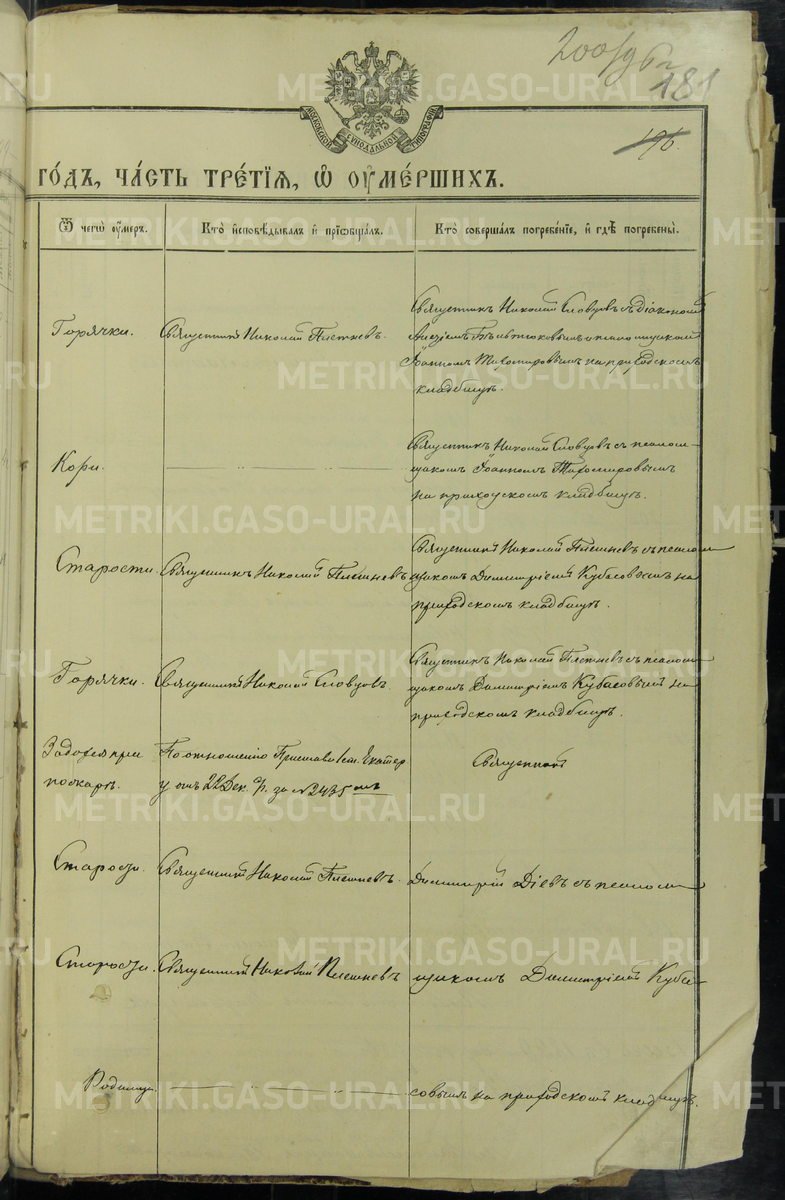 181
196.
МОСКОВСКОЙ СѴНОДАЛЬНОЙ ТИПОГРАФІИ
ГО́ДЪ, ЧА́СТЬ ТРЕ́ТІЯ, Ѡ҆ ОУ҆МЕ́РШИХЪ.
Ѿ чегѡ̀ оу҆́меръ.
Кто̀ и҆сповѣ́дывалъ и҆ прїѡбща́лъ.
Кто̀ соверша́лъ погребе́нїе, и҆ гдѣ̀ погребены̀.
Горячки.
Священникъ Николай Плетневъ.
Священникъ Николай Словцовъ съ діакономъ
и псаломщикомъ
Іоанномъ Тихомировымъ на приходскомъ
кладбищѣ.
Кори.
Священникъ Николай Словцовъ съ псалом-
щикомъ Іоанномъ Тихомировымъ
на приходскомъ кладбищѣ.
Старости.
Священникъ Николай Плетневъ
Священникъ Николай Плетневъ съ псалом
щикомъ Димитріемъ Кубасовымъ на
приходскомъ кладбищѣ.
Горячки.
Священникъ Николай Словцовъ
Священникъ Николай Плетневъ съ псалом
щикомъ Димитріемъ Кубасовымъ на
приходскомъ кладбищѣ.
Задохся при
пожарѣ.
По отношенію Пристава 1 ст. Екатер
у отъ 22 Дек. с/г. за №2435мъ
Священникъ
Старости.
Священникъ Николай Плетневъ.
Димитрій Діевъ съ псалом
Старости.
Священникъ Николай Плетневъ
щикомъ Димитріемъ Куба-
Родимца.
совымъ на приходскомъ кладбищѣ.
METRIKI.GASO-URAL.RU